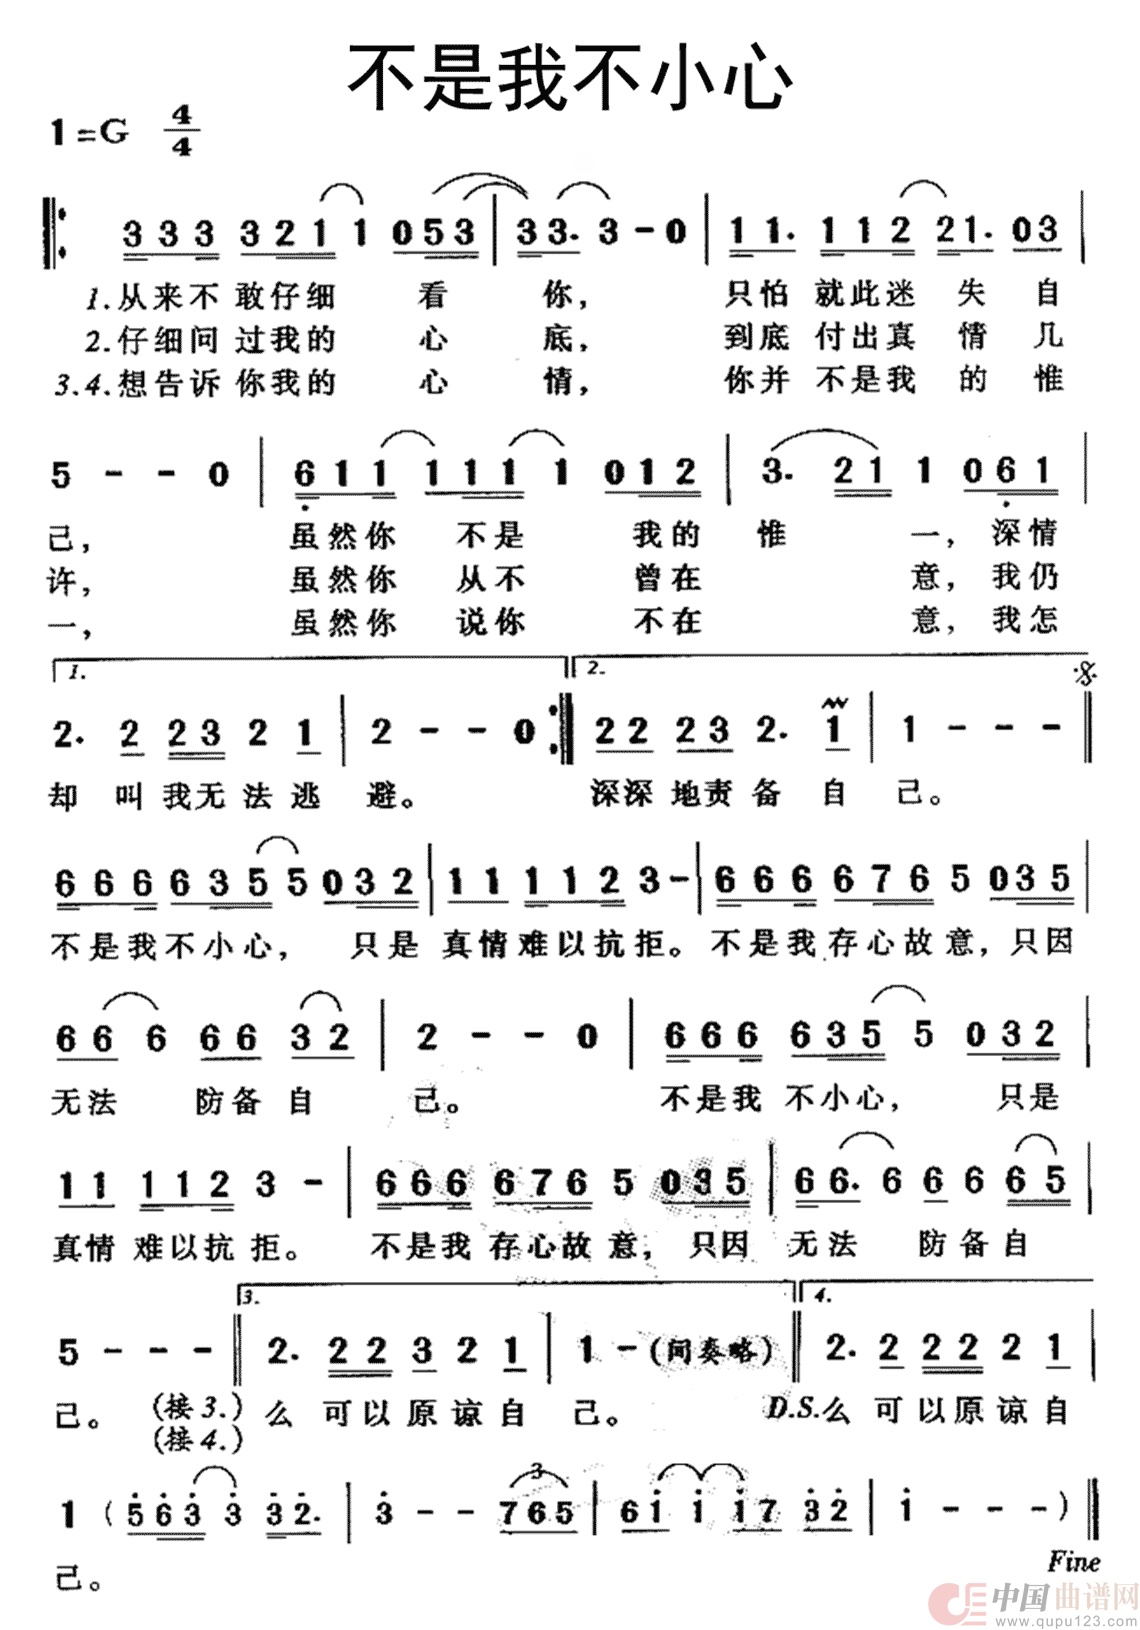 不是我不小心
1=G 4/4
3 3 3 3 2 1 1 0 5 3 | 3 3. 3 - 0 | 1 1. 1 1 2 2 1. 0 3 |
1.从来不 敢仔细 看 你， 只怕 就此迷 失 自
2.仔细问 过我的 心 底， 到底 付出真 情 几
3.4.想告诉 你我的 心 情， 你并 不是我 的 惟
5 - - 0 | 6 1 1 1 1 1 1 0 1 2 | 3. 2 1 1 0 6 1 |
己， 虽然你 不是 我的 惟 一，深情
许， 虽然你 从不 曾在 意，我仍
一， 虽然你 说你 不在 意，我怎
1. 2.
2. 2 2 3 2 1 | 2 - - 0 :| 2 2 2 3 2. 1 | 1 - - - ||
却 叫 我无 法 逃 避。 深深 地责 备 自 己。
6 6 6 6 3 5 5 0 3 2 | 1 1 1 1 2 3 - | 6 6 6 6 7 6 5 0 3 5 |
不是我不小心， 只是 真情难以抗拒。 不是我存心故意，只因
6 6 6 6 6 3 2 | 2 - - 0 | 6 6 6 6 3 5 5 0 3 2 |
无法 防备自 己。 不是我 不小心， 只是
1 1 1 1 2 3 - | 6 6 6 6 7 6 5 0 3 5 | 6 6. 6 6 6 6 5 |
真情 难以抗 拒。 不是我 存心故 意， 只因 无法 防备自
3. 4.
5 - - - || 2. 2 2 3 2 1 | 1 - (间奏略) || 2. 2 2 2 2 1 |
己。 (接3.) 么 可以 原 谅 自 己。 D.S.么 可以原 谅 自
(接4.)
3
1 (5 6 3 3 3 2. | 3 - - 7 6 5 | 6 1 1 1 7 3 2 | 1 - - - ) ||
己。 Fine
中国曲谱网
www.qupu123.com